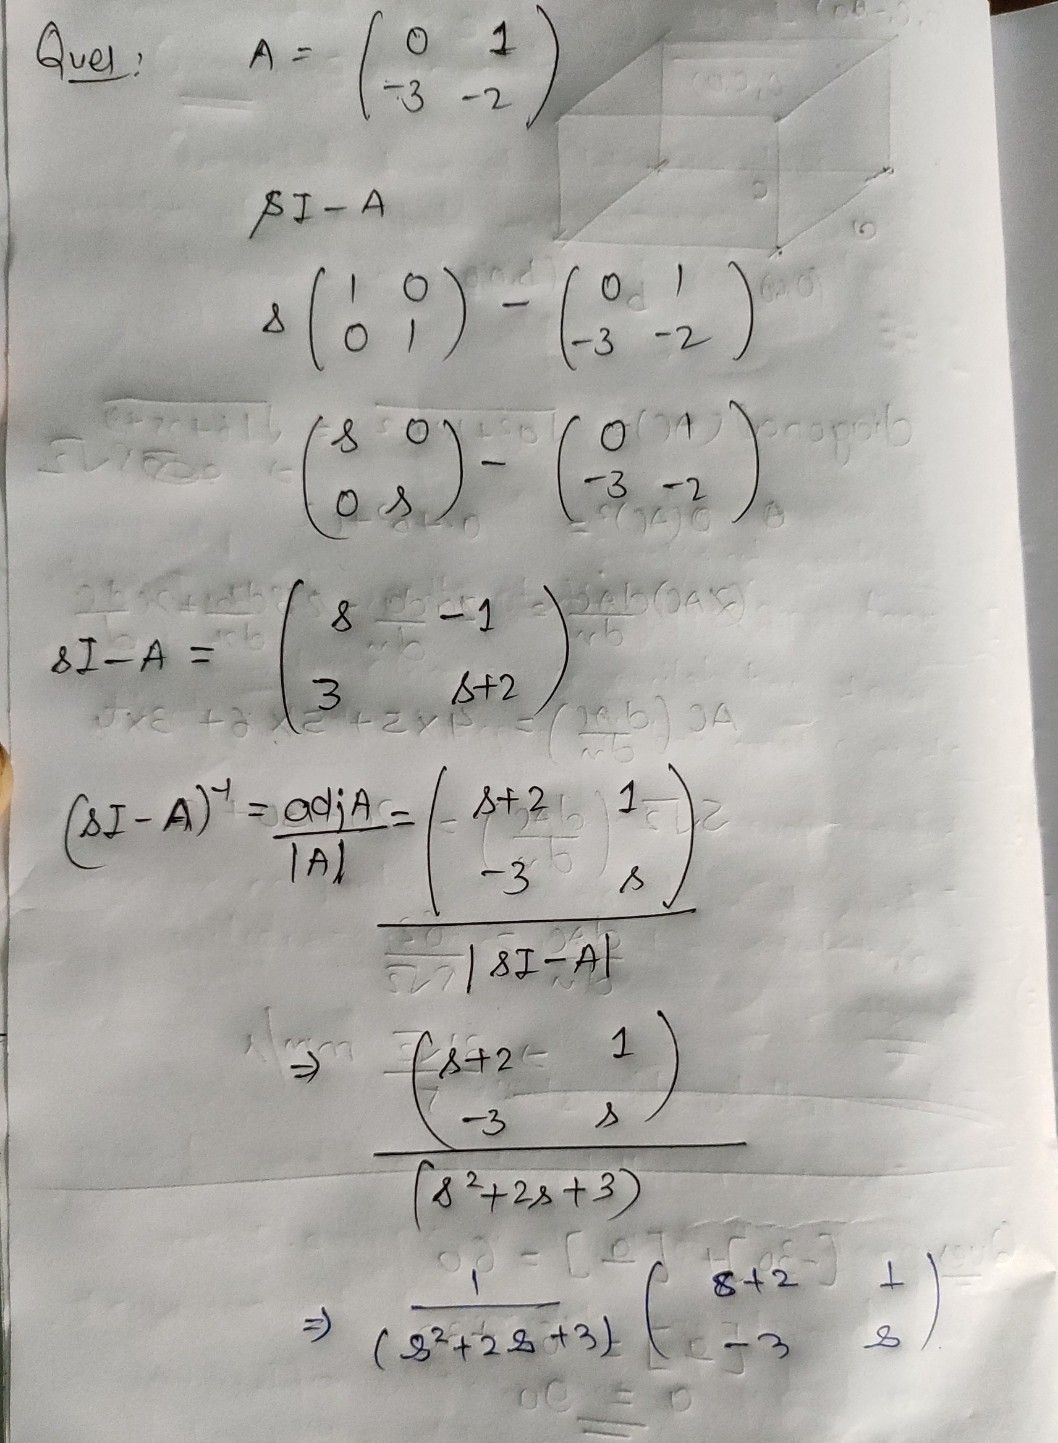 Ques: A = ( 0 1
-3 -2 )
sI - A
s ( 1 0
0 1 ) - ( 0 1
-3 -2 )
( s 0
0 s ) - ( 0 1
-3 -2 )
sI - A = ( s -1
3 s+2 )
(sI - A)⁻¹ = adjA / |A| = ( s+2 1
-3 s )
|sI - A|
⇒ ( s+2 1
-3 s )
(s²+2s+3)
⇒ 1 / (s²+2s+3) ( s+2 1
-3 s )